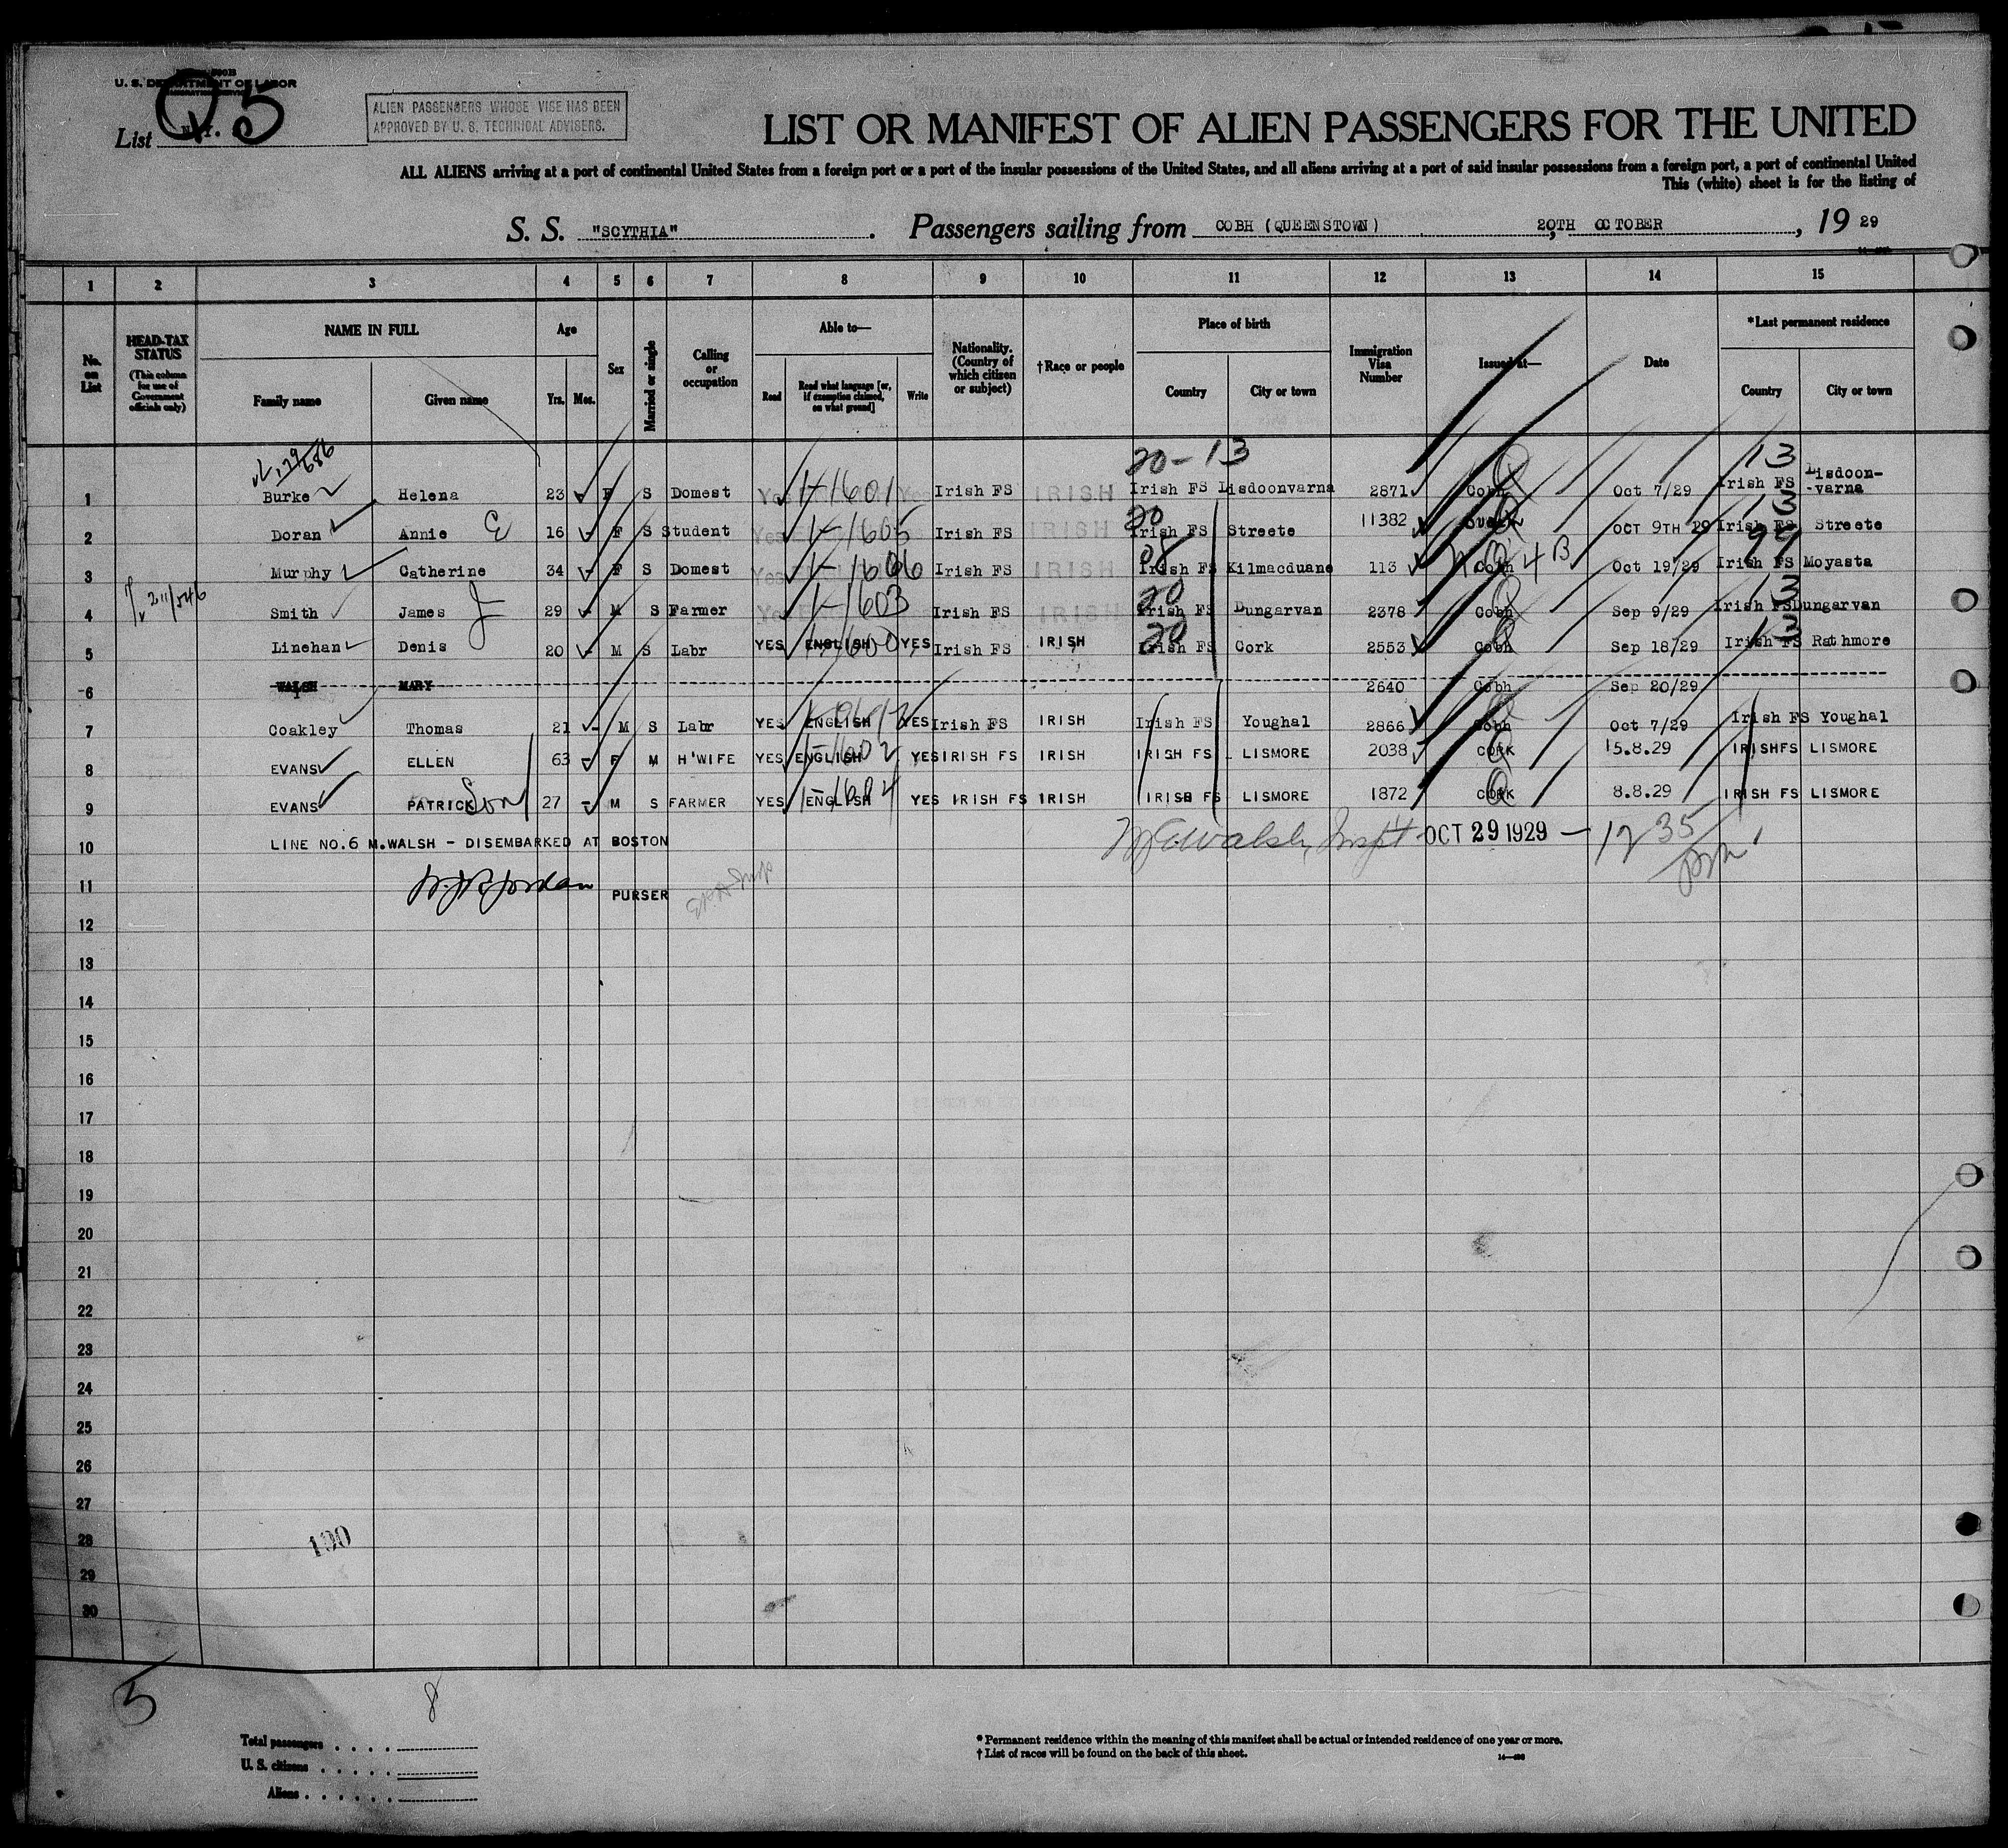 U. S. DEPARTMENT OF LABOR
List N.Y. 5
ALIEN PASSENGERS WHOSE VISE HAS BEEN
APPROVED BY U. S. TECHNICAL ADVISERS.
LIST OR MANIFEST OF ALIEN PASSENGERS FOR THE UNITED
ALL ALIENS arriving at a port of continental United States from a foreign port or a port of the insular possessions of the United States, and all aliens arriving at a port of said insular possessions from a foreign port, a port of continental United
This (white) sheet is for the listing of
S. S. "SCYTHIA". Passengers sailing from COBH (QUEENSTOWN) 20TH, OCTOBER, 19 29
1 2 3 4 5 6 7 8 9 10 11 12 13 14 15
No. on List
HEAD-TAX STATUS (This column for use of Government officials only)
NAME IN FULL Family name Given name
Age Yrs. Mos.
Sex
Married or single
Calling or occupation
Able to— Read Read what language [or, if exemption claimed, on what ground] Write
Nationality. (Country of which citizen or subject)
†Race or people
Place of birth Country City or town
Immigration Visa Number
Issued at—
Date
*Last permanent residence Country City or town
20-13 13
1 Burke Helena 23 F S Domest Yes 1-1601 Yes Irish FS IRISH Irish FS Lisdoonvarna 2871 Cobh Oct 7/29 Irish FS Lisdoon-
-varna
20 13
2 Doran Annie E 16 F S Student Yes 1-1605 Irish FS IRISH Irish FS Streete 11382 OCT 9TH 29 Irish FS Streete
99
3 Murphy Catherine 34 F S Domest Yes 1-1606 Irish FS IRISH Irish FS Kilmacduane 113 Cobh 4B Oct 19/29 Irish FS Moyasta
20 13
4 Smith James J 29 M S Farmer Yes 1-1603 Irish FS IRISH Irish FS Dungarvan 2378 Cobh Sep 9/29 Irish FS Dungarvan
20 13
5 Linehan Denis 20 M S Labr YES ENGLISH 1-1600 YES Irish FS IRISH Irish FS Cork 2553 Cobh Sep 18/29 Irish FS Rathmore
6 WALSH MARY 2640 Cobh Sep 20/29
7 Coakley Thomas 21 M S Labr YES ENGLISH YES Irish FS IRISH Irish FS Youghal 2866 Cobh Oct 7/29 Irish FS Youghal
8 EVANS ELLEN 63 F M H'WIFE YES ENGLISH 1-1602 YES IRISH FS IRISH IRISH FS LISMORE 2038 CORK 15.8.29 IRISHFS LISMORE
9 EVANS PATRICK Son 27 M S FARMER YES ENGLISH 1-1604 YES IRISH FS IRISH IRISH FS LISMORE 1872 CORK 8.8.29 IRISH FS LISMORE
10 LINE NO.6 M.WALSH - DISEMBARKED AT BOSTON Walsh, Inspt OCT 29 1929 - 1235
11 PURSER
12
13
14
15
16
17
18
19
20
21
22
23
24
25
26
27
28 190
29
30
5 8
Total passengers
U. S. citizens
Aliens
* Permanent residence within the meaning of this manifest shall be actual or intended residence of one year or more.
† List of races will be found on the back of this sheet.